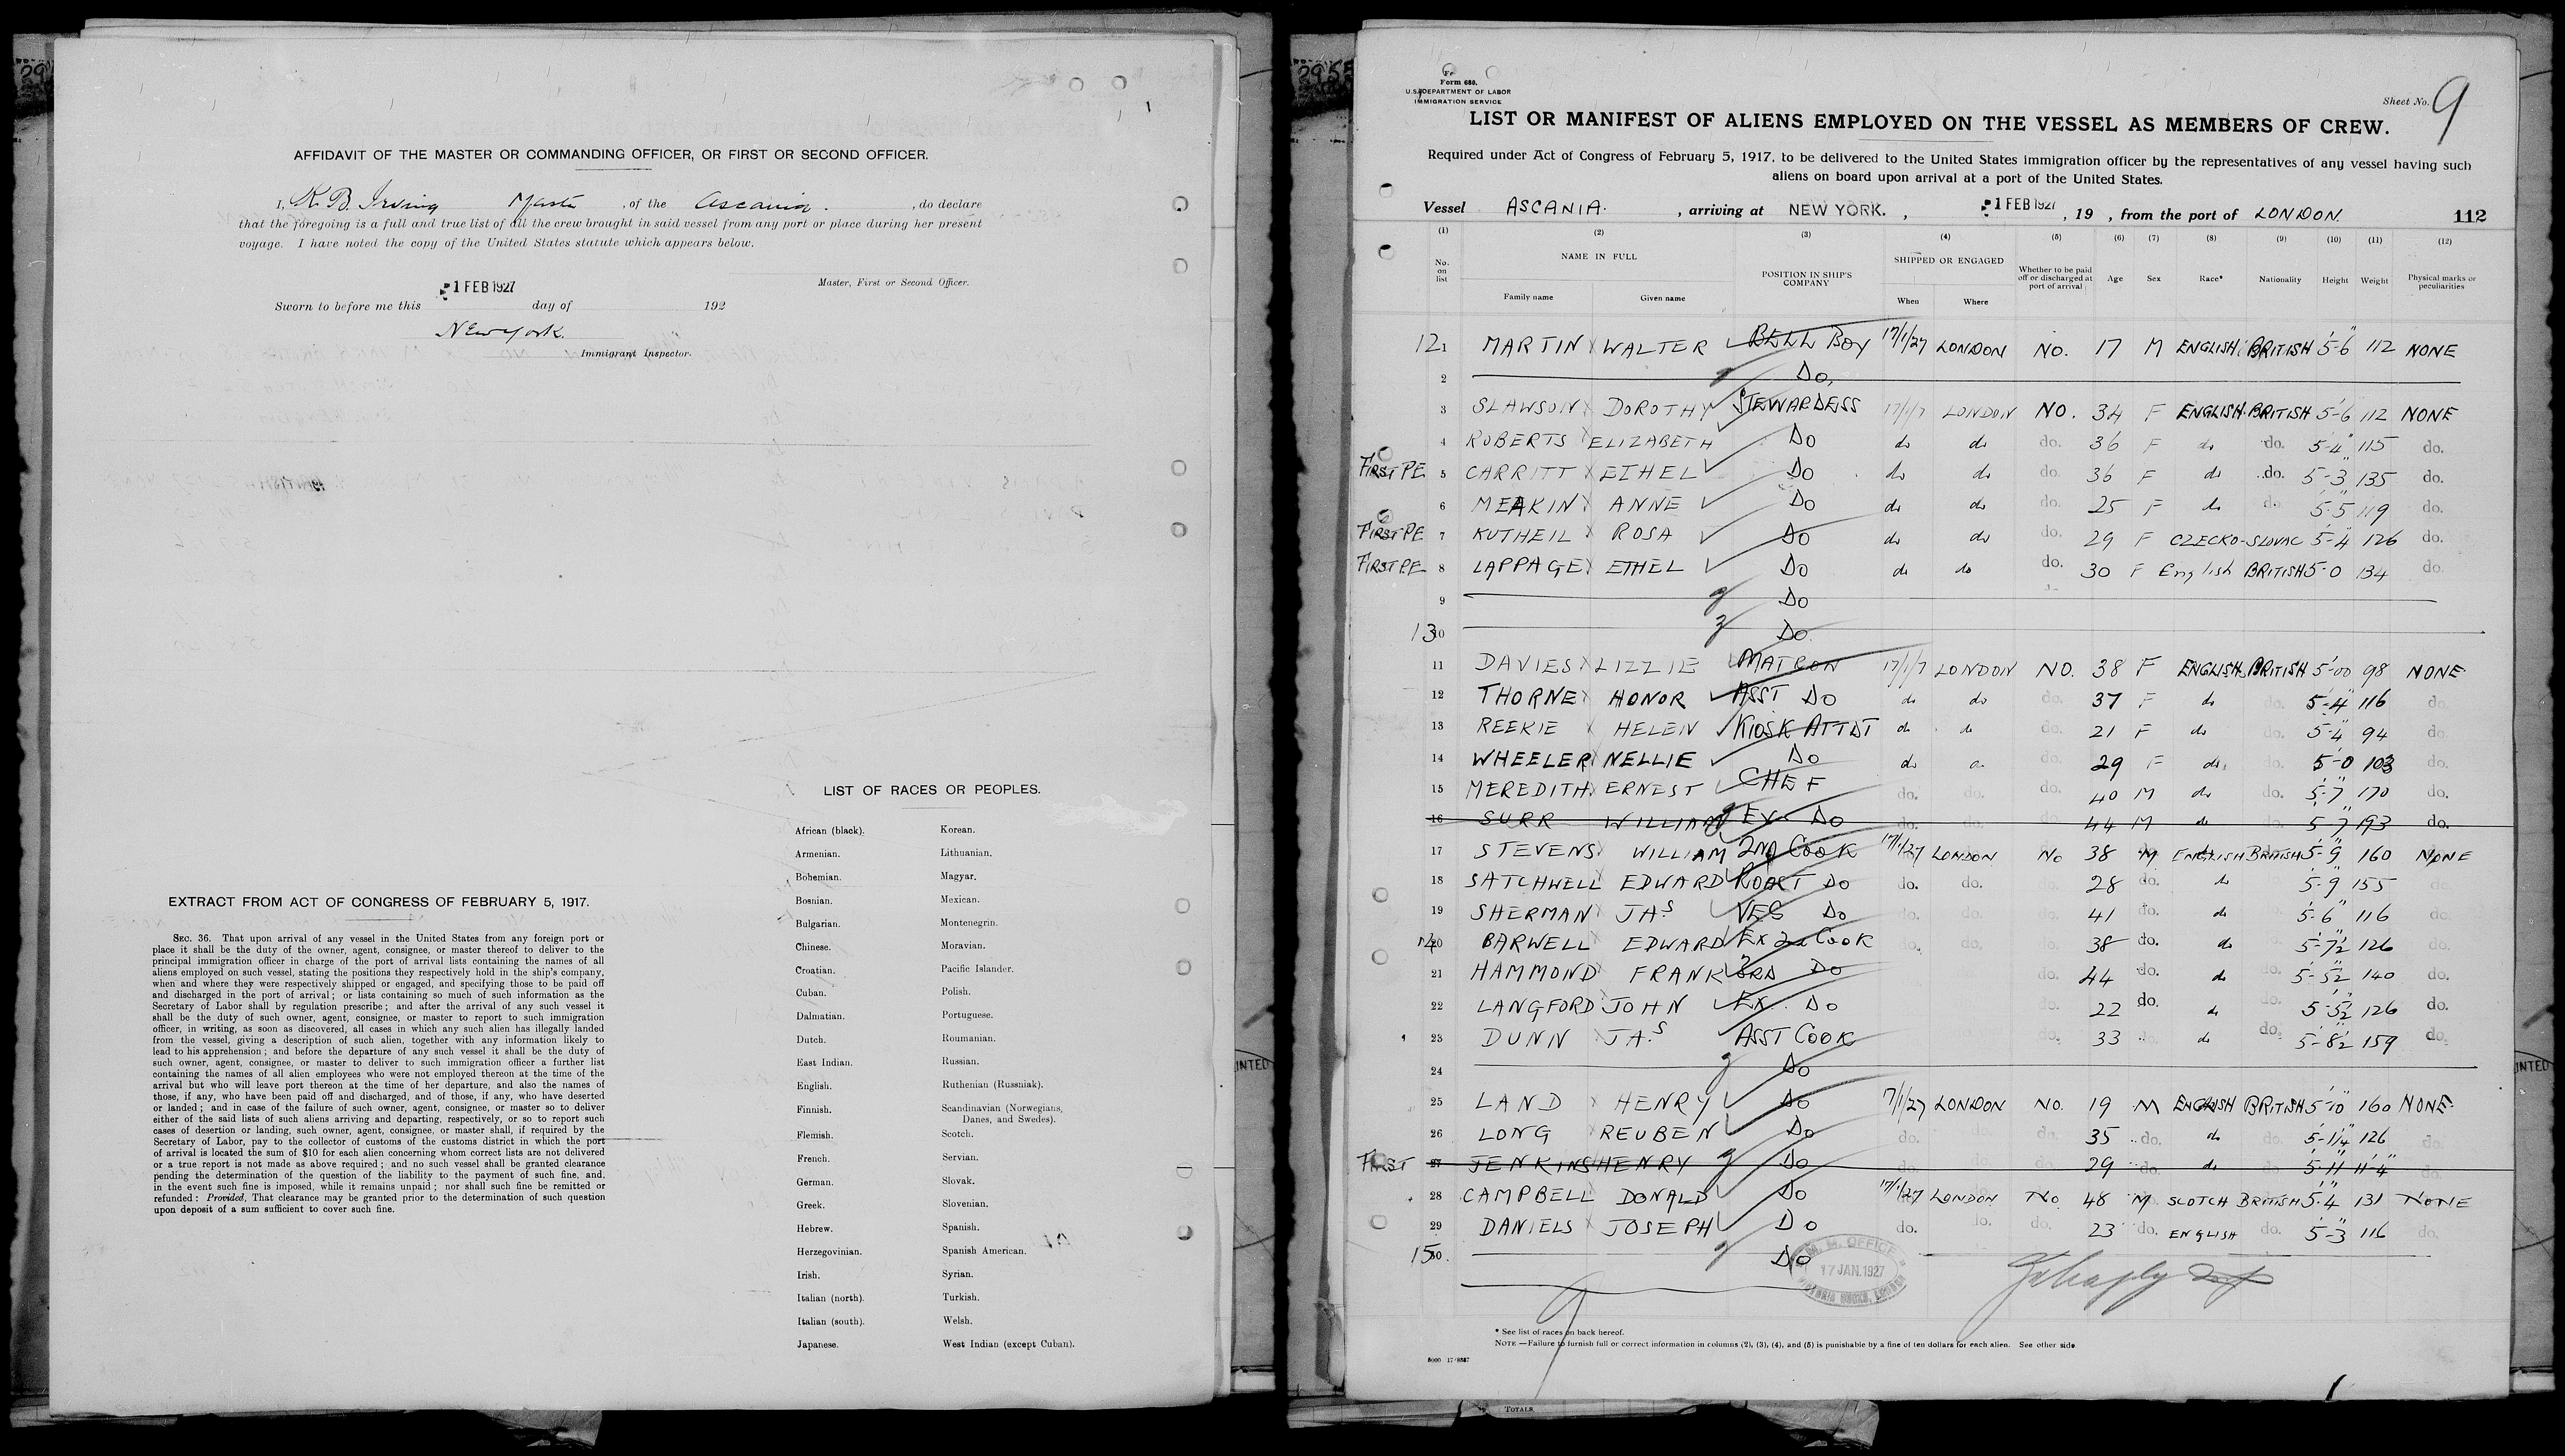 AFFIDAVIT OF THE MASTER OR COMMANDING OFFICER, OR FIRST OR SECOND OFFICER.
I, K. B. Irving Master , of the Ascania. , do declare
that the foregoing is a full and true list of all the crew brought in said vessel from any port or place during her present
voyage. I have noted the copy of the United States statute which appears below.
Master, First or Second Officer.
1 FEB 1927
Sworn to before me this day of 192
New York.
Immigrant Inspector.
EXTRACT FROM ACT OF CONGRESS OF FEBRUARY 5, 1917.
SEC. 36. That upon arrival of any vessel in the United States from any foreign port or
place it shall be the duty of the owner, agent, consignee, or master thereof to deliver to the
principal immigration officer in charge of the port of arrival lists containing the names of all
aliens employed on such vessel, stating the positions they respectively hold in the ship's company,
when and where they were respectively shipped or engaged, and specifying those to be paid off
and discharged in the port of arrival; or lists containing so much of such information as the
Secretary of Labor shall by regulation prescribe; and after the arrival of any such vessel it
shall be the duty of such owner, agent, consignee, or master to report to such immigration
officer, in writing, as soon as discovered, all cases in which any such alien has illegally landed
from the vessel, giving a description of such alien, together with any information likely to
lead to his apprehension; and before the departure of any such vessel it shall be the duty of
such owner, agent, consignee, or master to deliver to such immigration officer a further list
containing the names of all alien employees who were not employed thereon at the time of the
arrival but who will leave port thereon at the time of her departure, and also the names of
those, if any, who have been paid off and discharged, and of those, if any, who have deserted
or landed; and in case of the failure of such owner, agent, consignee, or master so to deliver
either of the said lists of such aliens arriving and departing, respectively, or so to report such
cases of desertion or landing, such owner, agent, consignee, or master shall, if required by the
Secretary of Labor, pay to the collector of customs of the customs district in which the port
of arrival is located the sum of $10 for each alien concerning whom correct lists are not delivered
or a true report is not made as above required; and no such vessel shall be granted clearance
pending the determination of the question of the liability to the payment of such fine, and,
in the event such fine is imposed, while it remains unpaid; nor shall such fine be remitted or
refunded: Provided, That clearance may be granted prior to the determination of such question
upon deposit of a sum sufficient to cover such fine.
LIST OF RACES OR PEOPLES.
African (black). Korean.
Armenian. Lithuanian.
Bohemian. Magyar.
Bosnian. Mexican.
Bulgarian. Montenegrin.
Chinese. Moravian.
Croatian. Pacific Islander.
Cuban. Polish.
Dalmatian. Portuguese.
Dutch. Roumanian.
East Indian. Russian.
English. Ruthenian (Russniak).
Finnish. Scandinavian (Norwegians,
Danes, and Swedes).
Flemish. Scotch.
French. Servian.
German. Slovak.
Greek. Slovenian.
Hebrew. Spanish.
Herzegovinian. Spanish American.
Irish. Syrian.
Italian (north). Turkish.
Italian (south). Welsh.
Japanese. West Indian (except Cuban).
Form 680.
U.S. DEPARTMENT OF LABOR
IMMIGRATION SERVICE
Sheet No. 9
LIST OR MANIFEST OF ALIENS EMPLOYED ON THE VESSEL AS MEMBERS OF CREW.
Required under Act of Congress of February 5, 1917, to be delivered to the United States immigration officer by the representatives of any vessel having such
aliens on board upon arrival at a port of the United States.
Vessel ASCANIA. , arriving at NEW YORK. , 1 FEB 1927 , 19 , from the port of LONDON 112
(1) (2) (3) (4) (5) (6) (7) (8) (9) (10) (11) (12)
No. on list NAME IN FULL Family name Given name POSITION IN SHIP'S COMPANY SHIPPED OR ENGAGED When Where Whether to be paid off or discharged at port of arrival Age Sex Race* Nationality Height Weight Physical marks or peculiarities
121 MARTIN WALTER BELL BOY 17/1/27 LONDON NO. 17 M ENGLISH BRITISH 5'-6" 112 NONE
2 Do.
3 SLAWSON DOROTHY STEWARDESS 17/1/7 LONDON NO. 34 F ENGLISH BRITISH 5-6 112 NONE
4 ROBERTS ELIZABETH Do do do do. 36 F do do. 5-4" 115 do.
FIRST PE 5 CARRITT ETHEL Do do do do. 36 F do do. 5-3 135 do.
6 MEAKIN ANNE Do do do do. 25 F do do 5-5 119 do.
FIRST PE 7 KUTHEIL ROSA Do do do do. 29 F CZECKO-SLOVAC 5-4 126 do.
FIRST P.E 8 LAPPAGE ETHEL Do do do do. 30 F English BRITISH 5-0 134 do.
9 Do
130 Do.
11 DAVIES LIZZIE MATRON 17/1/7 LONDON NO. 38 F ENGLISH BRITISH 5-00 98 NONE
12 THORNE HONOR ASST Do do do do. 37 F do do. 5-4" 116 do
13 REEKIE HELEN KIOSK ATTDT do do do. 21 F do do. 5-4 94 do
14 WHEELER NELLIE Do do do. 29 F do do. 5-0 103 do.
15 MEREDITH ERNEST CHEF do. do. do. 40 M do do. 5-7 170 do.
16 SURR WILLIAM EX Do do. do. 44 M do do. 5 7 193 do.
17 STEVENS WILLIAM 2ND COOK 17/1/27 LONDON No 38 M ENGLISH BRITISH 5-9" 160 NONE
18 SATCHWELL EDWARD ROAST Do do. do. 28 do. do 5-9 155 do
19 SHERMAN JAS VEG Do do. do. do. 41 do. do 5-6" 116 do
140 BARWELL EDWARD EX 2nd COOK do. do. do. 38 do. do 5-7½ 126 do.
21 HAMMOND FRANK 3RD Do do. 44 do. do do. 5-5½ 140 do.
22 LANGFORD JOHN EX. Do do. 22 do. do do. 5-5½ 126 do.
23 DUNN JAS ASST COOK do. 33 do do. 5-8½ 159 do.
24 Do
25 LAND HENRY Do 17/1/27 LONDON NO. 19 M ENGLISH BRITISH 5'-10" 160 NONE.
26 LONG REUBEN Do do. do. do. 35 do. do do. 126 do.
FIRST 27 JENKINS HENRY Do 29 do. do 5-11
28 CAMPBELL DONALD Do 17/1/27 LONDON No 48 M SCOTCH BRITISH 5.4 131 NONE
29 DANIELS JOSEPH Do do. do. do. 23 do. ENGLISH do. 5-3" 116 do.
150. Do
M. M. OFFICE
17 JAN. 1927
VICTORIA DOCKS, LONDON
* See list of races on back hereof.
NOTE.—Failure to furnish full or correct information in columns (2), (3), (4), and (5) is punishable by a fine of ten dollars for each alien. See other side
TOTALS.